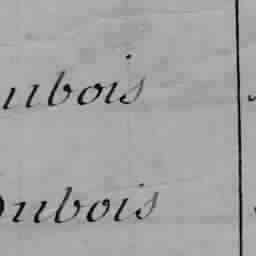 ubois
Dubois